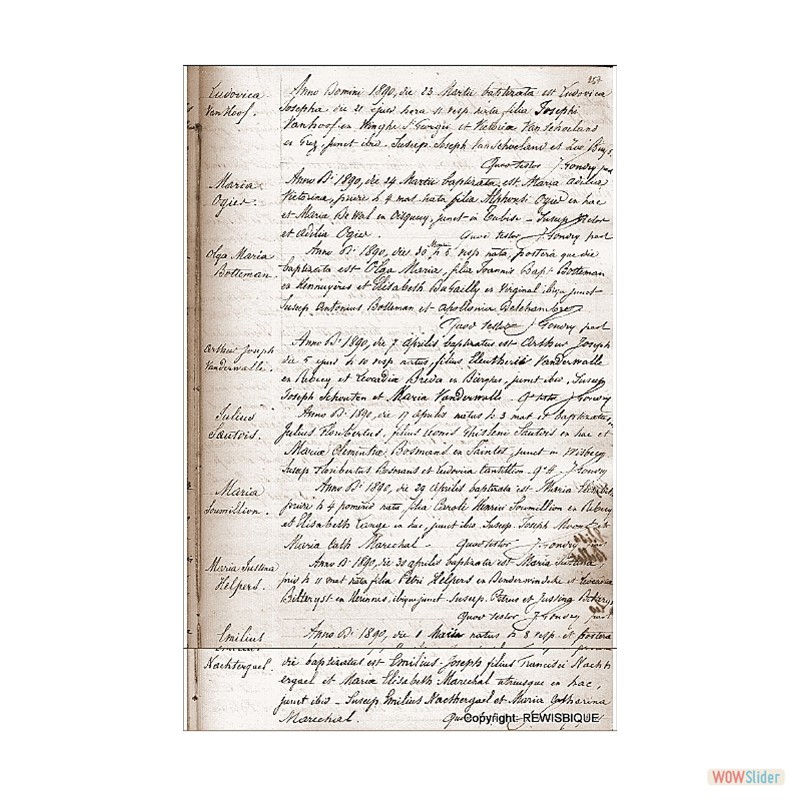 257
Ludovica
Van Hoof.
Anno Domini 1890, die 23 Martii baptizata est Ludovica
Josepha die 21 ejusd hora 11 vesp nata filia Josephi
Vanhoof ex Winghe St Georges et Victoria Van Schoeland
ex Grez, junct ibid. Suscep. Joseph Van Schoeland et Zoé
Quod testor J. Gondry past
Maria
Ogier.
Anno Di 1890, die 24 Martii baptizata est Maria Adilia
Victorina, pridie h 4 mat nata filia Alphonsi Ogier ex hac
et Maria De Wal ex junct in Tubise - Suscep Victor
et Adilia Ogier. Quod testor J. Gondry past
Olga Maria
Botteman.
Anno Di 1890, die 30 h 5 vesp nata, postera que die
baptizata est Olga Maria, filia Joannis Bapt Botteman
ex Hennuyères et Elisabeth ex Virginal ibique junct
Suscep Antonius Botteman et Apollonia Delchambre
Quod testor J Gondry past
Arthur Joseph
Vanderwalle.
Anno Di 1890, die 7 Aprilis baptizatus est Arthur Joseph
die 5 ejusd h 10 vesp natus, filius Eleutherii Vanderwalle
ex Rebecq et Leocadia Breda ex Bierghes, junct ibid. Suscep
Joseph Schouten et Maria Vanderwalle. Q testor J. Gondry
Julius
Sautois.
Anno Di 1890, die 17 Aprilis natus h 3 mat et baptizatus
Julius Floribertus, filius Leonis Ghisleni Sautois ex hac et
Maria Clementia Bosmans ex Saintes, junct in Wisbecq
Suscep Floribertus Bosmans et Ludovica Cantillon. Q.t. J Gondry
Maria
Soumillion.
Anno Di 1890, die 29 Aprilis baptizata est Maria
pridie h 4 pomerid nata filia Caroli Henrici Soumillion ex Rebecq
et Elisabeth Lange ex hac, junct ibid. Suscep. Joseph et
Maria Cath Marechal - Quod testor J. Gondry
Maria Justina
Helpers.
Anno Di 1890, die 30 Aprilis baptizata est Maria Justina
prid h 11 mat nata filia Petri Helpers ex et Leocadia
Bitteryst ex Herinnes, ibique junct. Suscep. Petrus et Justina
Quod testor J Gondry past
Emilius
Nachtergael.
Anno Di 1890, die 1 Maii natus h 8 vesp. et postera
die baptizatus est Emilius-Joseph filius Francisci Nacht
ergael et Maria Elisabeth Marechal utriusque ex hac,
junct ibid - Suscep Emilius Nachtergael et Maria Catharina
Marechal.
Copyright- REWISBIQUE
WOWSlider